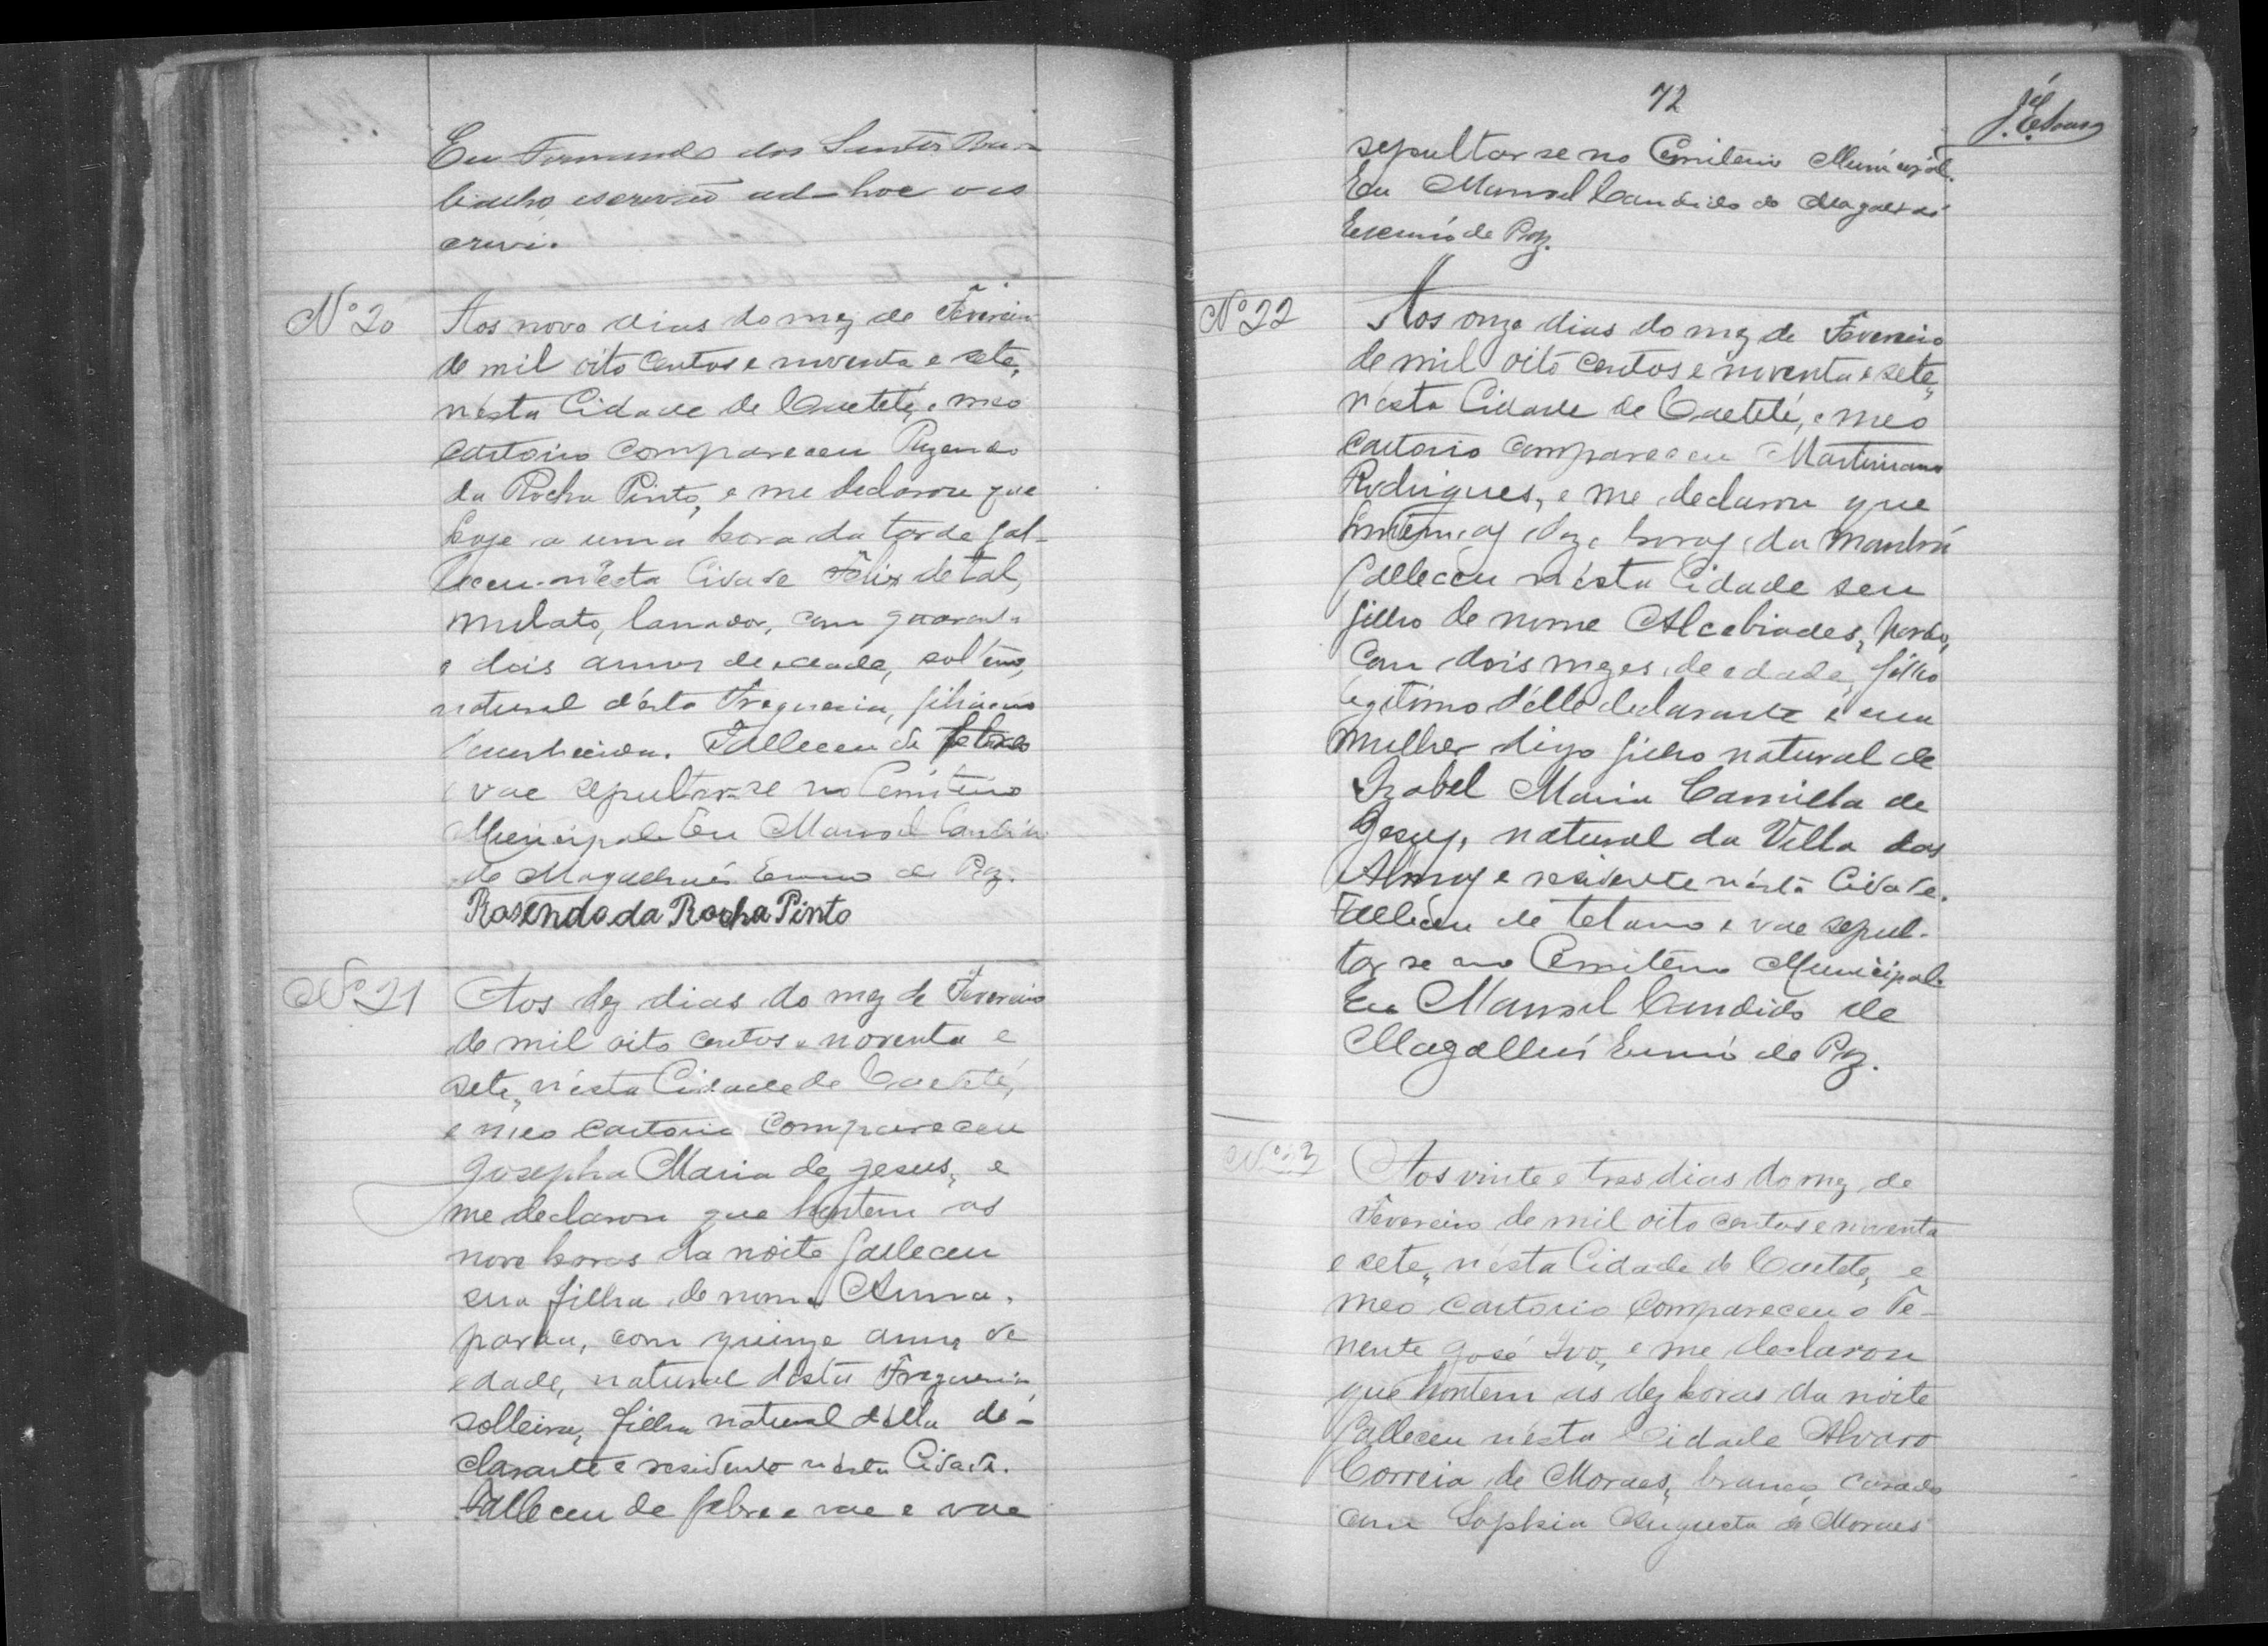 Eu Fernando dos Santos
escrivão ad-hoc o es
crevi.
Nº 20
Aos nove dias do mez de Fevereiro
de mil oito centos e noventa e sete,
nésta Cidade de Caetété, e meo
cartorio compareceu Ruzendo
da Rocha Pinto, e me declarou que
hoje a uma hora da tarde fal-
leceu nésta Cidade Felix de tal,
mulato, lavrador, com quarenta
e dois annos de edade, solteiro,
natural d'ésta Freguezia, filiação
Falleceu de
e vae sepultar-se no Cemiterio
Municipal. Eu Manoel Candido
de Magalhães Escrivão de Paz.
Rosendo da Rocha Pinto
Nº 21
Aos dez dias do mez de Fevereiro
de mil oito centos e noventa e
sete, nésta Cidade de Caetété,
e meo cartorio compareceu
Josepha Maria de Jesus, e
me declarou que hontem as
nove horas da noite falleceu
sua filha de nome Anna,
parda, com quinze annos de
edade, natural désta Freguezia,
solteira, filha natural délla de-
clarante e residente nésta Cidade.
Falleceu de febre e vae e vae
72
sepultar se no Cemiterio Municipal.
Eu Manoel Candido de Magalhães
Escrivão de Paz.
Nº 22
Aos onze dias do mez de Fevereiro
de mil oito centos e noventa e sete,
nésta Cidade de Caetété, e meo
cartorio compareceu Martiniano
Rodrigues, e me declarou que
hontem as doze horas da manhã
falleceu nésta Cidade seu
filho de nome Alcebiades, pardo,
com dois mezes de edade, filho
legitimo délle declarante e sua
mulher digo filho natural de
Izabel Maria Camilla de
Jesus, natural da Villa das
Almas e residente nésta Cidade.
Falleceu de tetano e vae sepul-
tar se no Cemiterio Municipal.
Eu Manoel Candido de
Magalhães Escrivão de Paz.
Nº 23
Aos vinte e tres dias do mez de
Fevereiro de mil oito centos e noventa
e sete, nésta Cidade de Caetété, e
meo cartorio compareceu o Te-
nente José Ivo, e me declarou
que hontem as dez horas da noite
falleceu nésta Cidade Alvaro
Correia de Moraes, branco, casado
com Sophia Augusta de Moraes